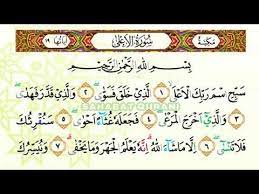 مَكِّيَّة سُورَةُ الأَعْلَى آيَاتُهَا ١٩
بِسْمِ اللَّهِ الرَّحْمَٰنِ الرَّحِيمِ
سَبِّحِ اسْمَ رَبِّكَ الْأَعْلَى ١ الَّذِي خَلَقَ فَسَوَّىٰ ٢ وَالَّذِي قَدَّرَ فَهَدَىٰ
٣ وَالَّذِي أَخْرَجَ الْمَرْعَىٰ ٤ فَجَعَلَهُ غُثَاءً أَحْوَىٰ ٥ سَنُقْرِئُكَ
فَلَا تَنسَىٰ ٦ إِلَّا مَا شَاءَ اللَّهُ إِنَّهُ يَعْلَمُ الْجَهْرَ وَمَا يَخْفَىٰ ٧ وَنُيَسِّرُكَ